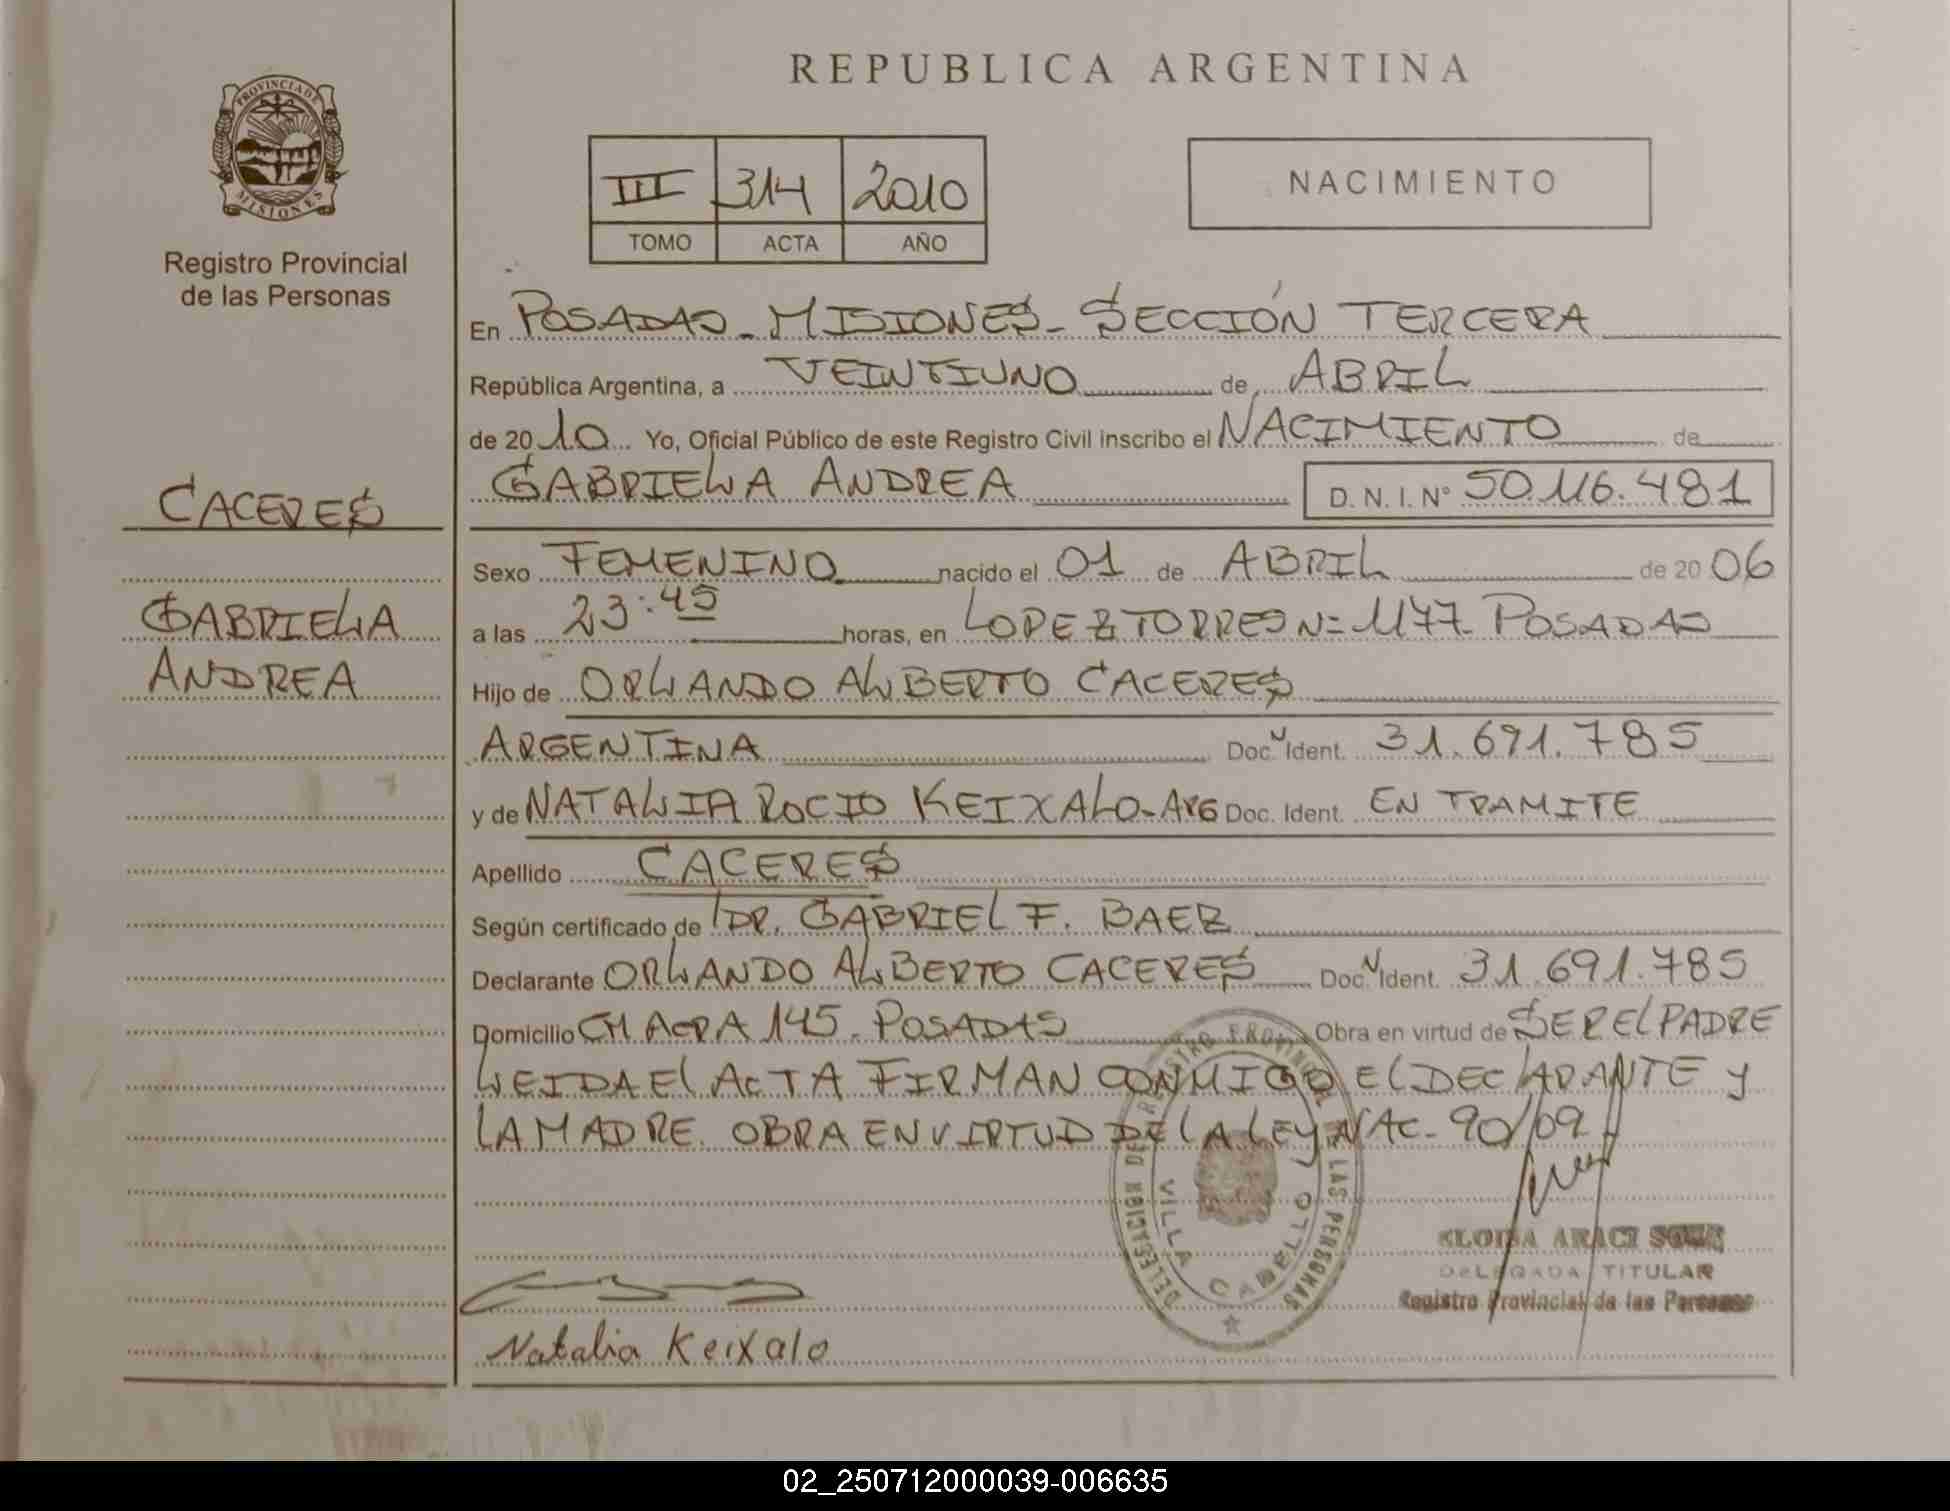 REPUBLICA ARGENTINA
PROVINCIA DE
MISIONES
Registro Provincial
de las Personas
III 314 2010
TOMO ACTA AÑO
NACIMIENTO
En POSADAS - MISIONES - SECCIÓN TERCERA
República Argentina, a VEINTIUNO de ABRIL
de 2010 Yo, Oficial Público de este Registro Civil inscribo el NACIMIENTO de
GABRIELA ANDREA D. N. I. N° 50.116.481
CACERES
GABRIELA
ANDREA
Sexo FEMENINO nacido el 01 de ABRIL de 2006
a las 23:45 horas, en LOPEZ TORRES N= 1177 - POSADAS
Hijo de ORLANDO ALBERTO CACERES
ARGENTINA Doc. Ident. 31.691.785
y de NATALIA ROCIO KEIXALO - ARG Doc. Ident. EN TRAMITE
Apellido CACERES
Según certificado de DR. GABRIEL F. BAEZ
Declarante ORLANDO ALBERTO CACERES Doc. Ident. 31.691.785
Domicilio CHACRA 145 - POSADAS Obra en virtud de SER EL PADRE
LEIDA EL ACTA FIRMAN CONMIGO EL DECLARANTE Y
LA MADRE. OBRA EN VIRTUD DE LA LEY NAC. 90/09
DELEGACION DE REGISTRO PROVINCIAL DE LAS PERSONAS
VILLA CABELLO
ARACI
DELEGADA TITULAR
Registro Provincial de las Personas
Natalia Keixalo
02_250712000039-006635